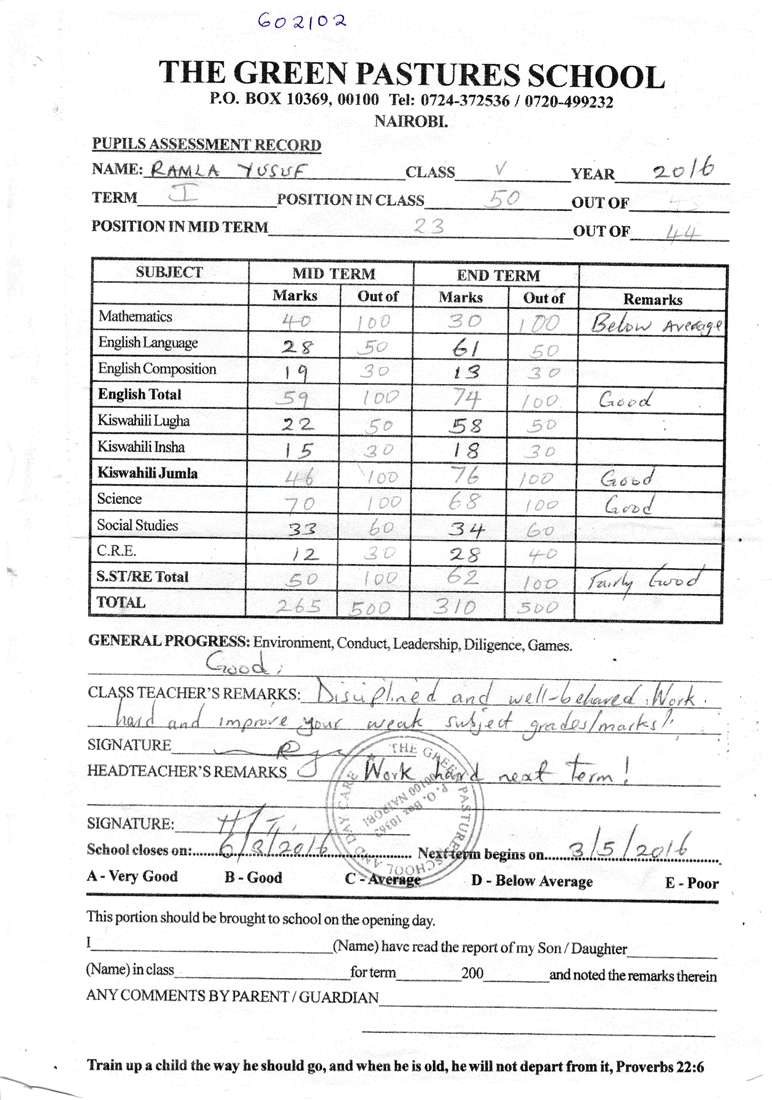 602102
THE GREEN PASTURES SCHOOL
P.O. BOX 10369, 00100 Tel: 0724-372536 / 0720-499232
NAIROBI.
PUPILS ASSESSMENT RECORD
NAME: RAMLA YUSUF CLASS V YEAR 2016
TERM I POSITION IN CLASS 50 OUT OF
POSITION IN MID TERM 23 OUT OF 44
SUBJECT MID TERM END TERM
Marks Out of Marks Out of Remarks
Mathematics 40 100 30 100 Below Average
English Language 28 50 61 50
English Composition 19 30 13 30
English Total 59 100 74 100 Good
Kiswahili Lugha 22 50 58 50
Kiswahili Insha 15 30 18 30
Kiswahili Jumla 46 100 76 100 Good
Science 70 100 68 100 Good
Social Studies 33 60 34 60
C.R.E. 12 30 28 40
S.ST/RE Total 50 100 62 100 Fairly Good
TOTAL 265 500 310 500
GENERAL PROGRESS: Environment, Conduct, Leadership, Diligence, Games.
Good.
CLASS TEACHER'S REMARKS: Disciplined and well-behaved. Work
hard and improve your weak subject grades/marks!
SIGNATURE
HEADTEACHER'S REMARKS Work hard next term!
SIGNATURE:
THE GREEN PASTURES SCHOOL AND DAY CARE
P. O. Box 10362
00100 NAIROBI
School closes on:..... 6/8/2016 ..... Next term begins on..... 3/5/2016
A - Very Good B - Good C - Average D - Below Average E - Poor
This portion should be brought to school on the opening day.
I (Name) have read the report of my Son / Daughter
(Name) in class for term 200 and noted the remarks therein
ANY COMMENTS BY PARENT / GUARDIAN
Train up a child the way he should go, and when he is old, he will not depart from it, Proverbs 22:6